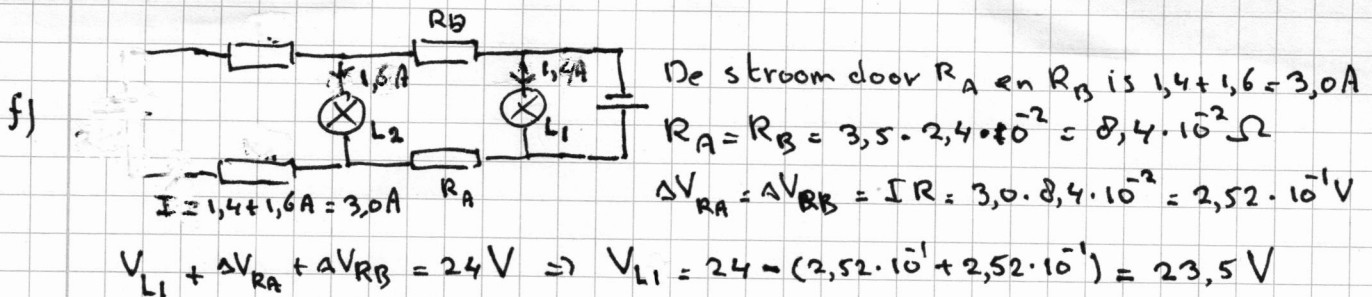 f)
RB
1,6A
1,4A
L2
L1
RA
I = 1,4+1,6A = 3,0A
De stroom door RA en RB is 1,4+1,6 = 3,0A
RA = RB = 3,5 · 2,4 · 10⁻² = 8,4 · 10⁻² Ω
ΔVRA = ΔVRB = I R = 3,0 · 8,4 · 10⁻² = 2,52 · 10⁻¹ V
VL1 + ΔVRA + ΔVRB = 24 V => VL1 = 24 - (2,52 · 10⁻¹ + 2,52 · 10⁻¹) = 23,5 V